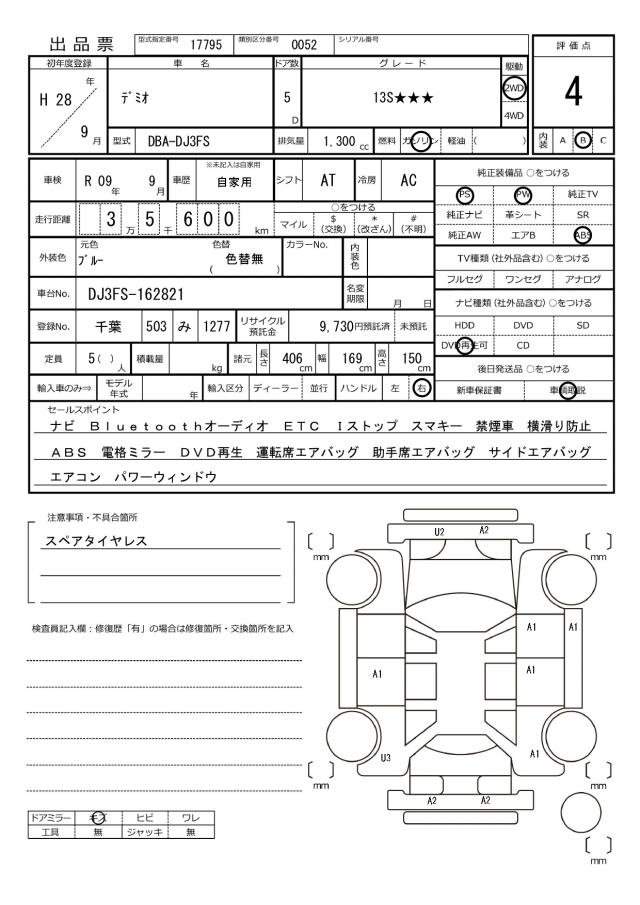 出品票
型式指定番号 17795 類別区分番号 0052 シリアル番号
評価点
4
初年度登録 車名 ドア数 グレード 駆動
H 28 年 9 月
デミオ
5 D
13S★★★
2WD
4WD
型式 DBA-DJ3FS 排気量 1.300 cc 燃料 ガソリン 軽油 ( )
内装 A B C
車検 R 09 年 9 月 車歴 ※未記入は自家用 自家用 シフト AT 冷房 AC
純正装備品 ○をつける
PS PW 純正TV
純正ナビ 革シート SR
純正AW エアB ABS
走行距離 3 万 5 千 6 0 0 km
○をつける
マイル $ (交換) * (改ざん) # (不明)
外装色 元色 ブルー 色替 ( 色替無 ) カラーNo. 内装色
TV種類(社外品含む)○をつける
フルセグ ワンセグ アナログ
車台No. DJ3FS-162821 名変期限 月 日
ナビ種類(社外品含む)○をつける
登録No. 千葉 503 み 1277 リサイクル預託金 9,730円預託済 未預託
HDD DVD SD
DVD再生可 CD
定員 5 ( ) 人 積載量 kg 諸元 長さ 406 cm 幅 169 cm 高さ 150 cm
後日発送品 ○をつける
輸入車のみ⇒ モデル年式 年 輸入区分 ディーラー 並行 ハンドル 左 右
新車保証書 車輌取説
セールスポイント
ナビ Bluetoothオーディオ ETC Iストップ スマキー 禁煙車 横滑り防止
ABS 電格ミラー DVD再生 運転席エアバッグ 助手席エアバッグ サイドエアバッグ
エアコン パワーウィンドウ
注意事項・不具合箇所
スペアタイヤレス
検査員記入欄：修復歴「有」の場合は修復箇所・交換箇所を記入
U2 A2
mm mm
A1 A1
A1 A1
U3 A1
mm mm
A2 A2
mm
ドアミラー キズ ヒビ ワレ
工具 無 ジャッキ 無